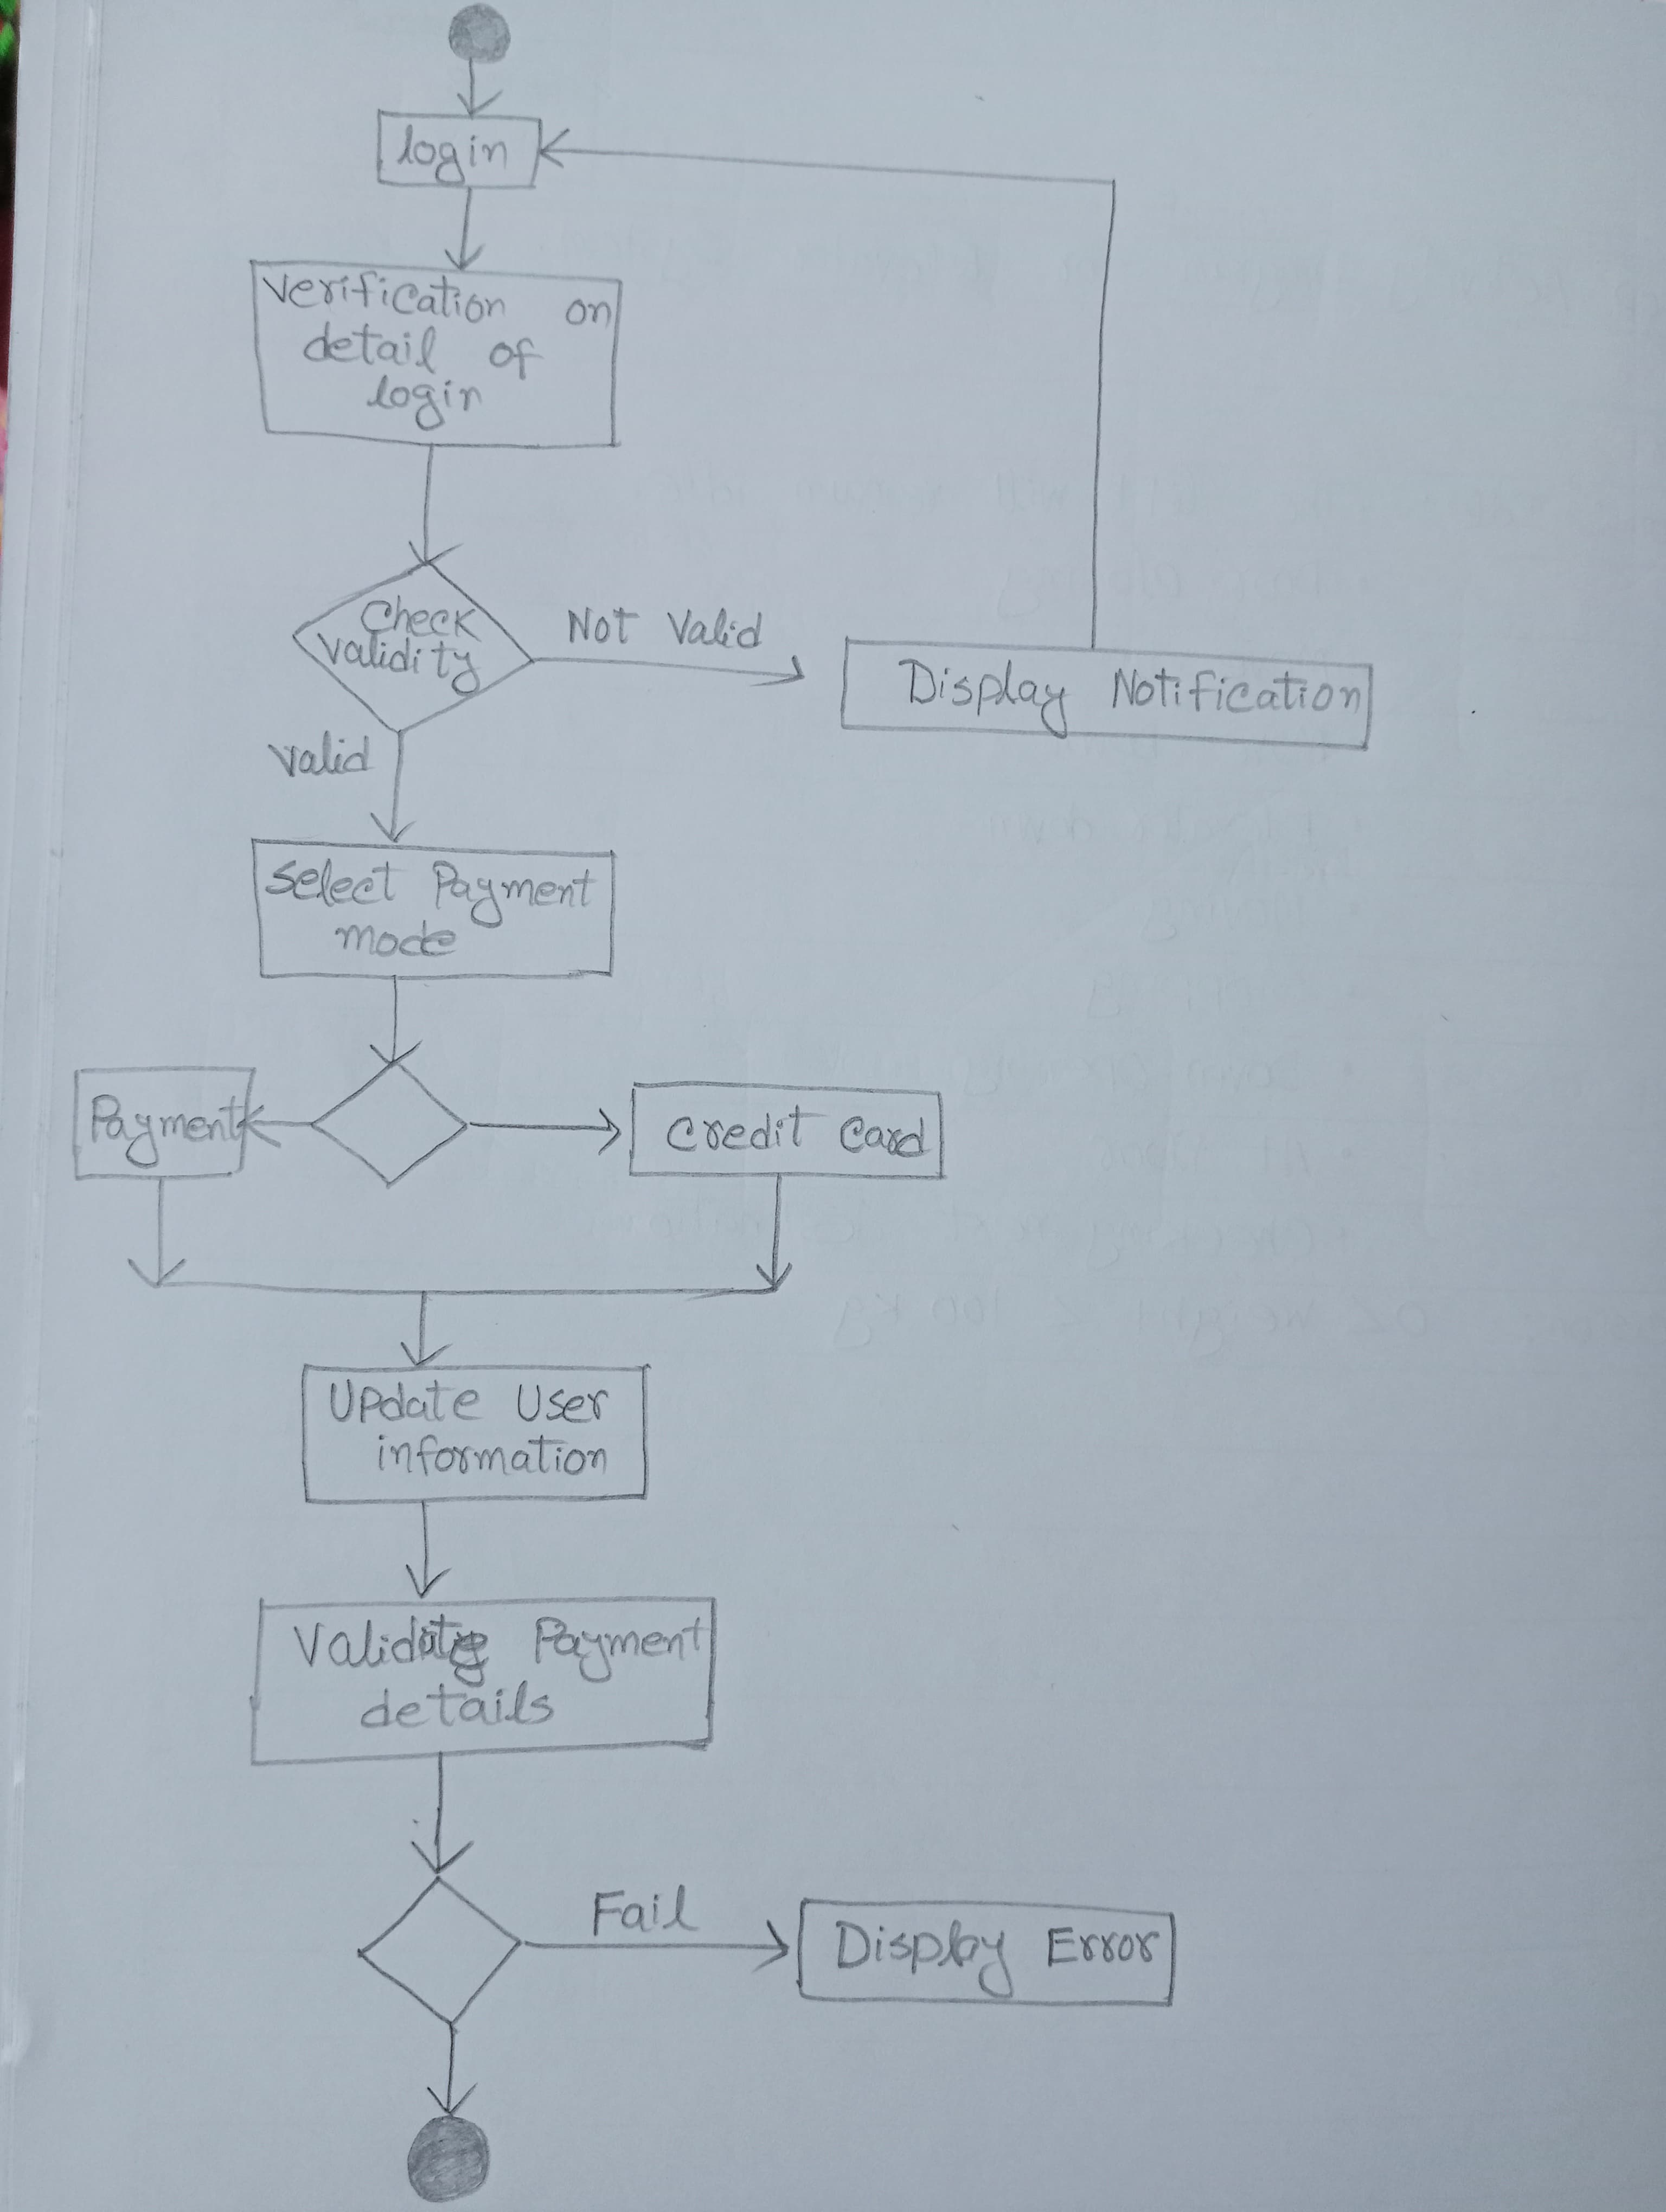 login
Verification on
detail of
login
Check
validity
Not Valid
Display Notification
valid
Select Payment
mode
Payment
Credit Card
Update User
information
Payment
details
Fail
Display Error